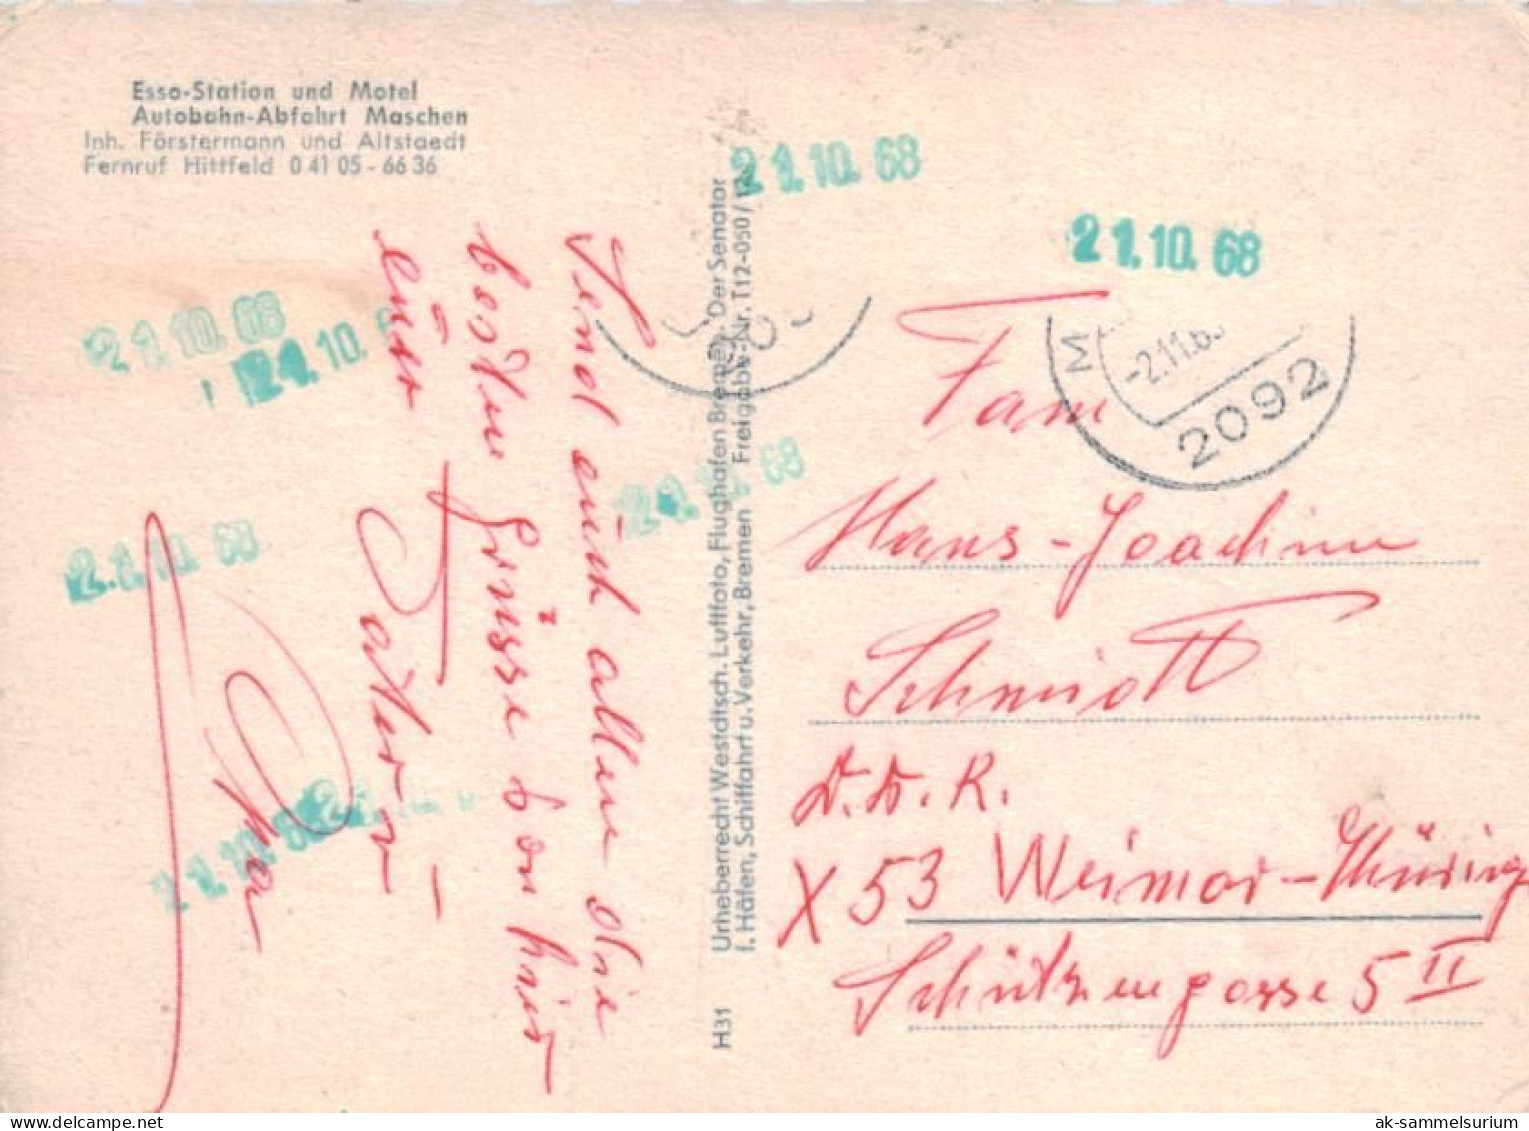 Esso-Station und Motel
Autobahn-Abfahrt Maschen
Inh. Förstermann und Altstaedt
Fernruf Hittfeld 0 41 05 - 66 36
21.10.68
21.10.68
21.10.68
21.10.
21.10.68
21.10.68
21.10.68
-2.11.6
2092
Send euch allen die
besten Grüsse von hier
euer Vater -
Opa
H31 Urheberrecht Westdtsch. Luftfoto, Flughafen Bremen. Der Senator
f. Häfen, Schiffahrt u. Verkehr, Bremen Freigabe-Nr. T12-050/
Fam
Hans-Joachim
Schmidt
D.D.R.
X 53 Weimar-Thüring
Schützengasse 5 II
ak-sammelsurium